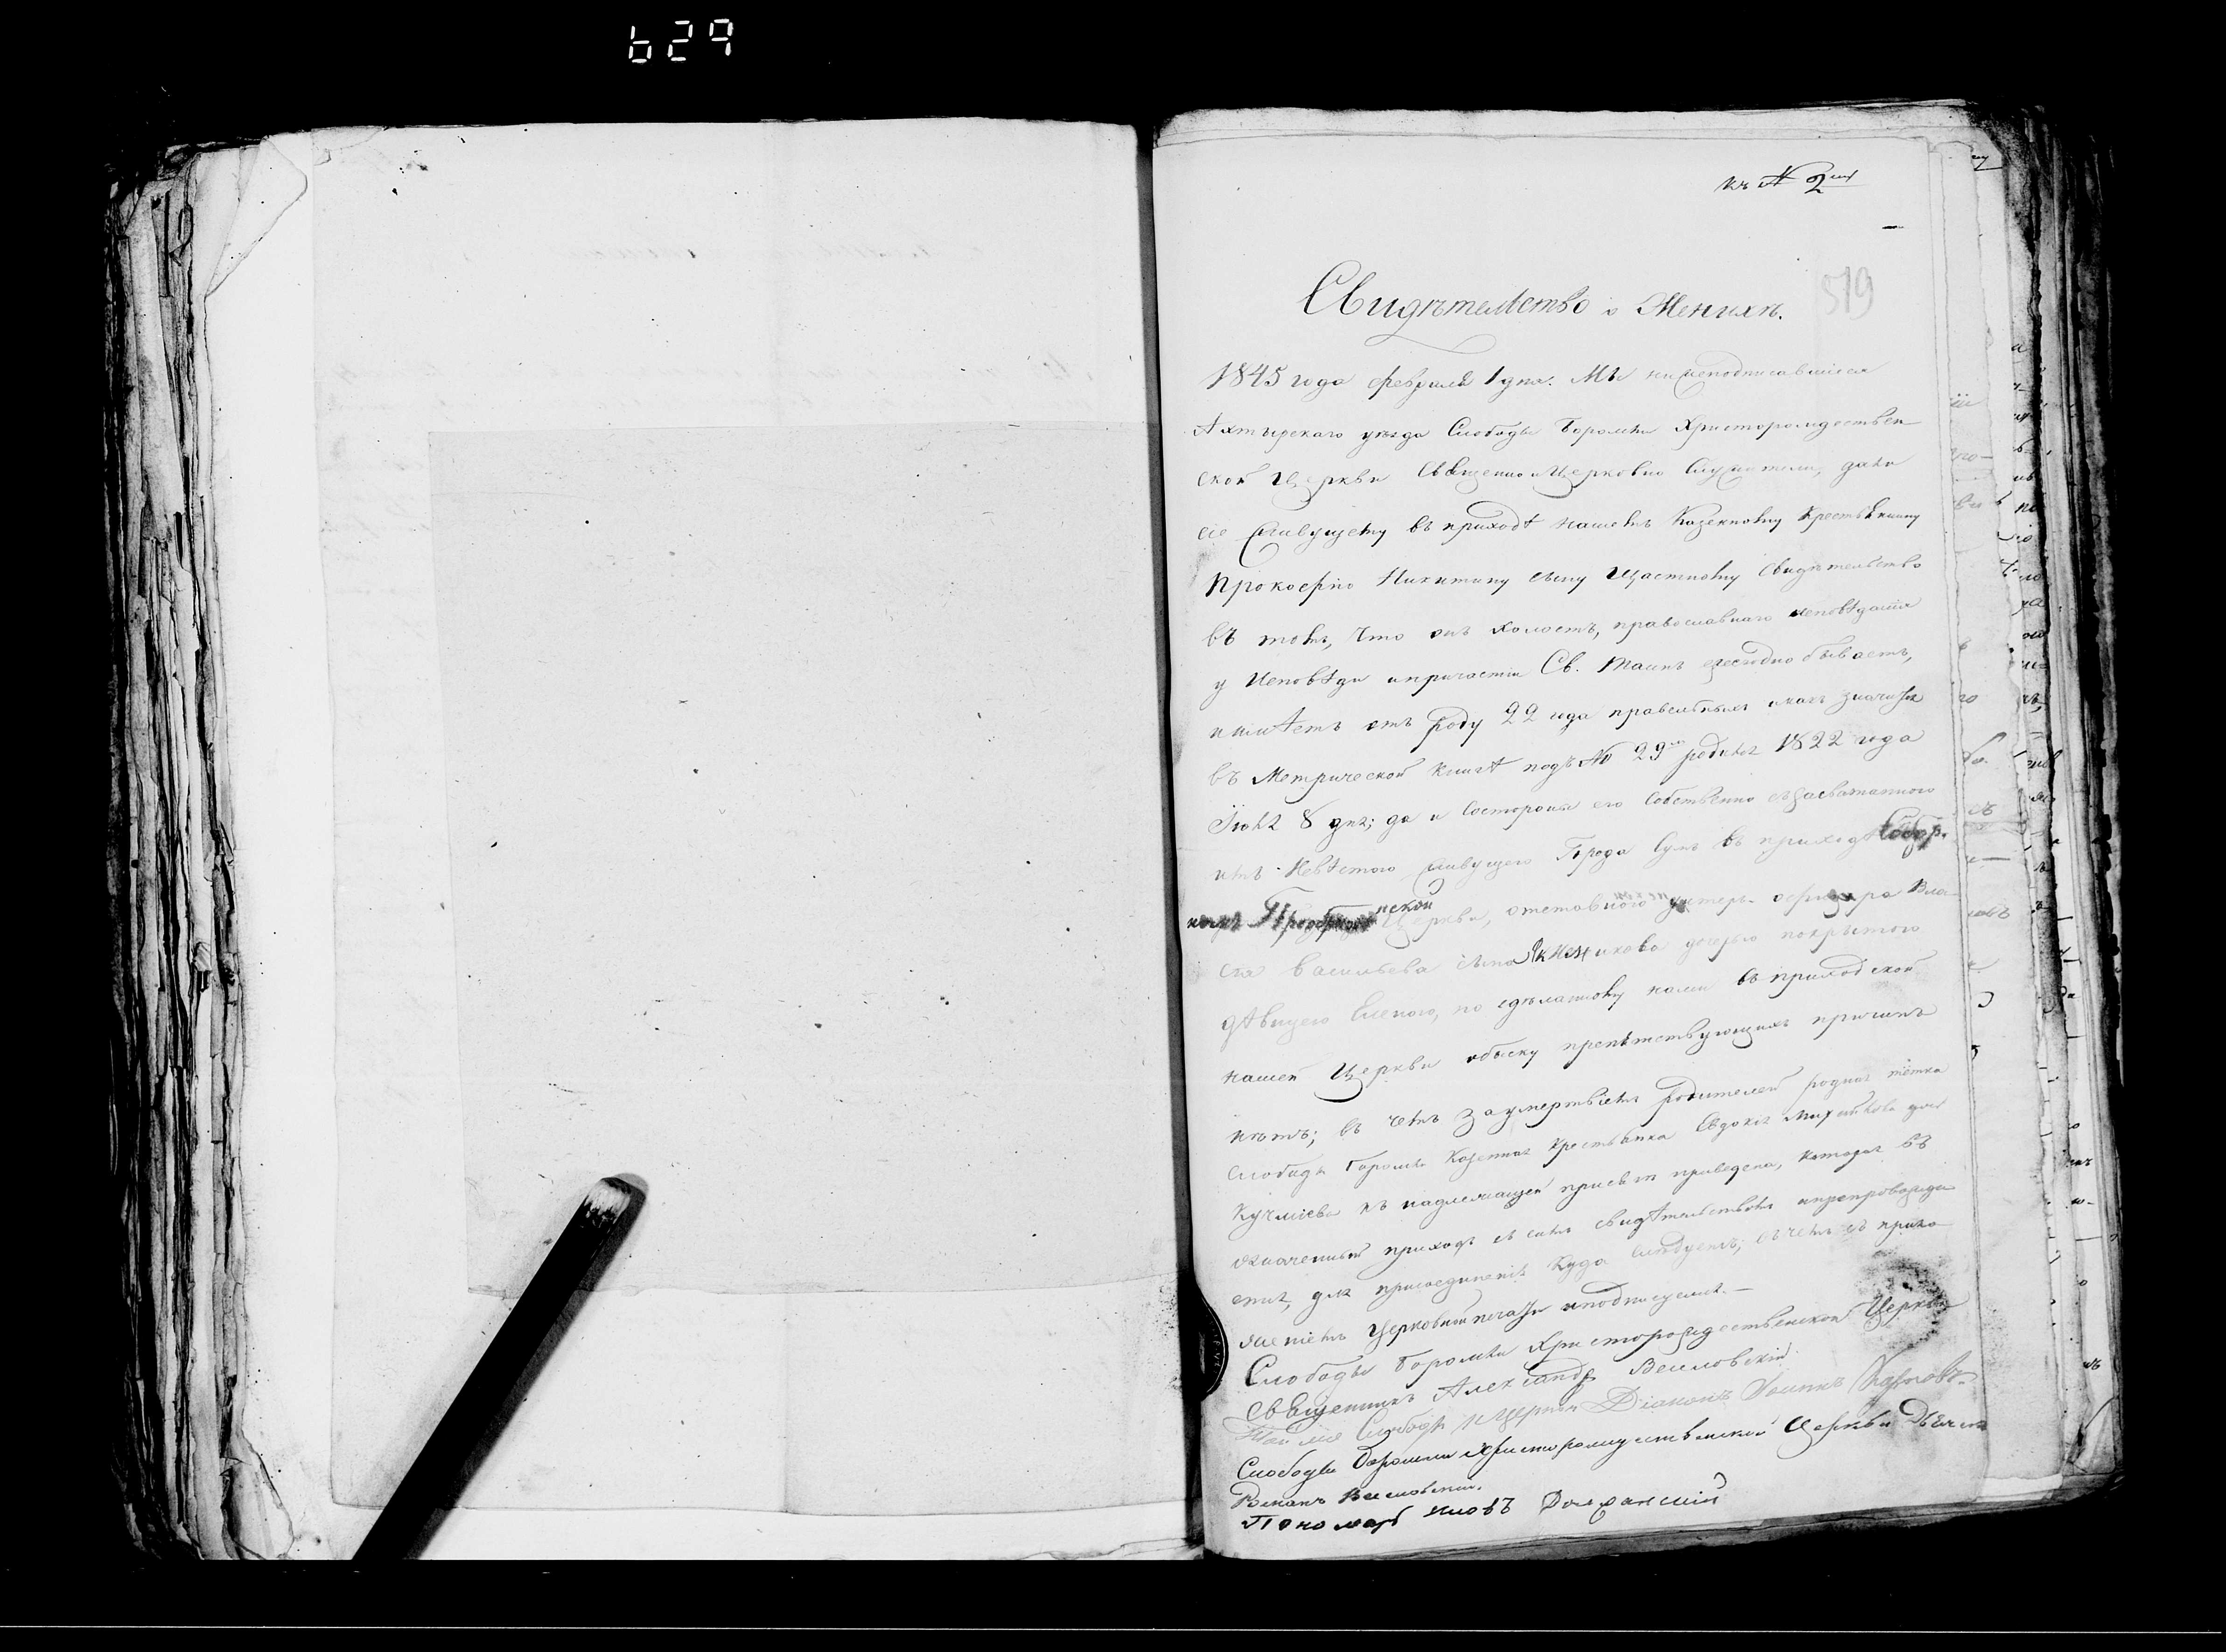 629
къ № 2му
519
Свидѣтельство о Женихѣ.
1845 года февраля 1 дня. Мы нижеподписавшіеся
Ахтырскаго уѣзда Слободы Боромли Христорождествен-
ской Церкви Священно и Церковно Служители, дали
сіе живущему въ приходѣ нашемъ Казенному Крестьянину
Прокофію Никитину сыну Щастному Свидѣтельство
въ томъ, что онъ холостъ, православнаго исповѣданія
у Исповѣди и причастія Св. Таинъ ежегодно бываетъ,
имѣетъ отъ роду 22 года правильныхъ какъ значится
въ Метрической книгѣ подъ № 29 родился 1822 года
Іюля 8 дня; да и состороны его собственно съ засватанною
имъ Невѣстою живущею Города Сумъ въ приходѣ Собор.
Церкви, отставного унтеръ-офицера Вла-
сія Васильева сына дочерью покрытою
дѣвицею Еленою, по сдѣланному нами въ приходской
нашей Церкви обыску препятствующихъ причинъ
нѣтъ; въ чемъ за умертвіемъ родителей родная тётка
слободы Боромли Казенная Крестьянка Евдокія Михайлова дочь
къ надлежащей присягѣ приведена, которая въ
означенный приходъ съ симъ свидѣтельствомъ и препровожда-
ется, для присоединенія куда слѣдуетъ; въ чемъ съ прило-
женіемъ Церковной печати и подписуемся.—
Слободы Боромли Христорождественской Церкви
Священникъ Александръ Веселовскій
Той же Слободы и Церкви Діаконъ Іоаннъ
Слободы Боромли Христорождественской Церкви Дьячекъ
Романъ Веселовскій.
Пономарь Іовъ